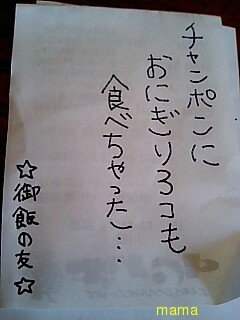 チャンポンに
おにぎりろコも
食べちゃった…
☆御飯の友☆
mama